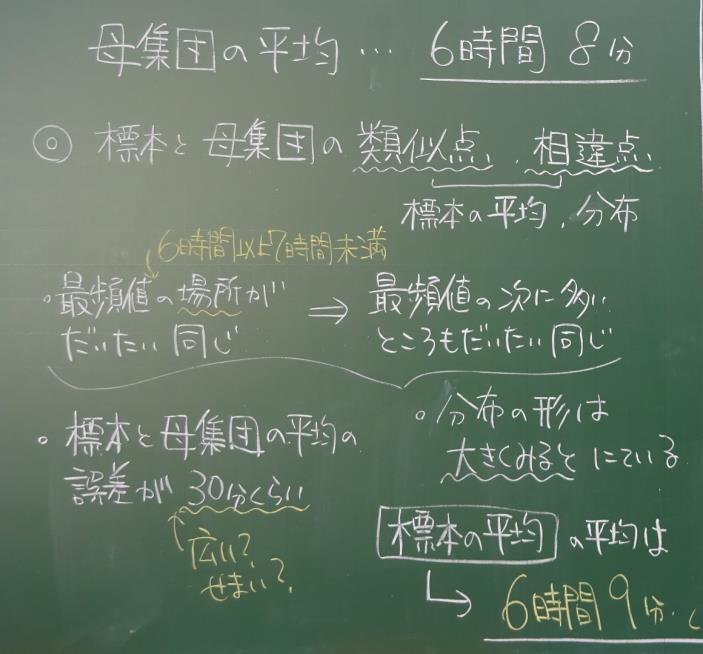 母集団の平均… 6時間 8分
◎ 標本と母集団の類似点、相違点
標本の平均、分布
6時間以上7時間未満
・最頻値の場所が
だいたい同じ
⇒
最頻値の次に多い
ところもだいたい同じ
・標本と母集団の平均の
誤差が 30分くらい
広い?
せまい?
・分布の形は
大きくみると にている
標本の平均 の平均は
6時間 9分.